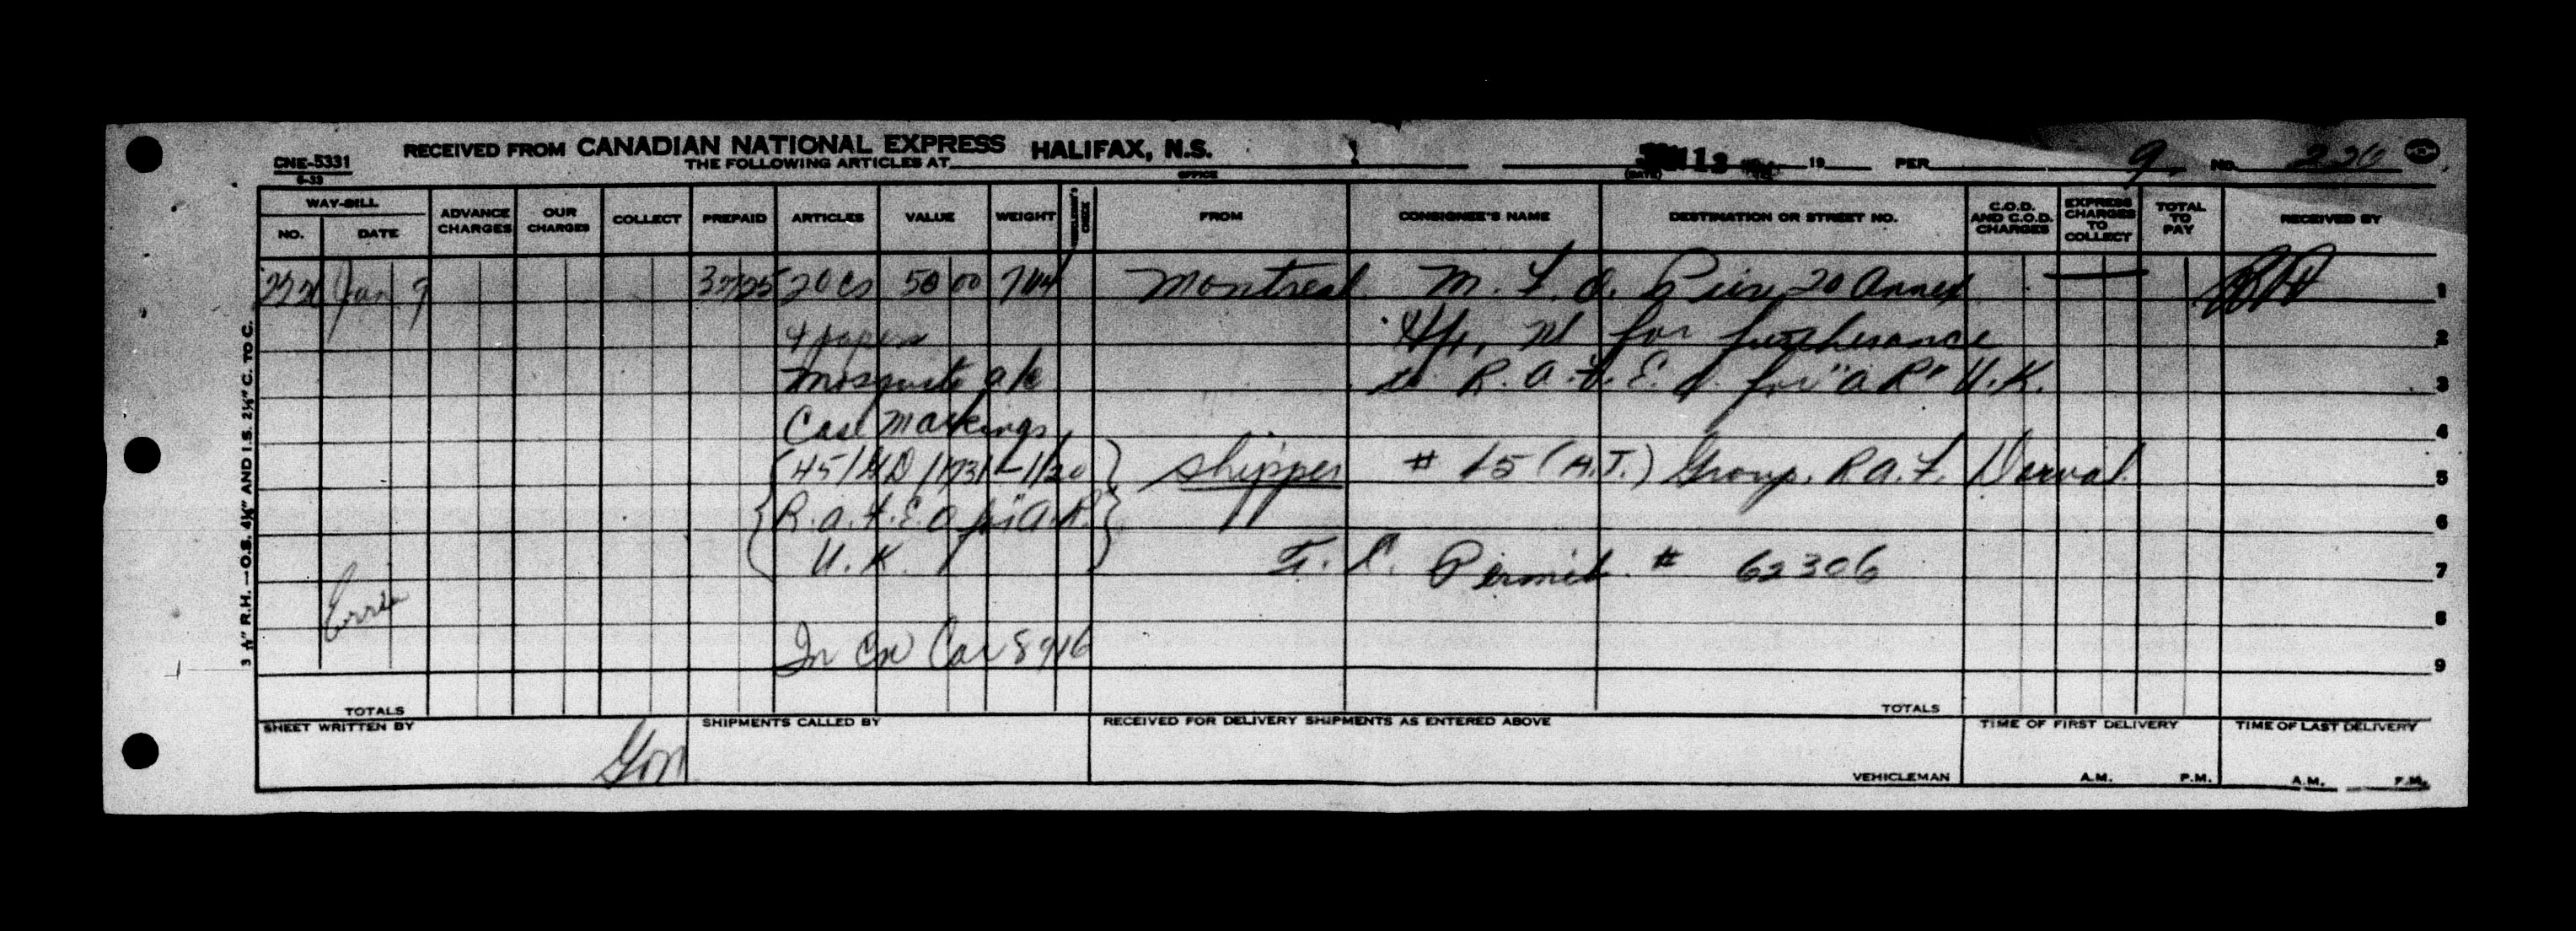 CNE-5331
6-33
RECEIVED FROM CANADIAN NATIONAL EXPRESS HALIFAX, N.S.
THE FOLLOWING ARTICLES AT
OFFICE
13
(DATE)
19
PER
9
NO. 220
WAY-BILL
NO. DATE
ADVANCE CHARGES
OUR CHARGES
COLLECT
PREPAID
ARTICLES
VALUE
WEIGHT
CHECK
FROM
CONSIGNEE'S NAME
DESTINATION OR STREET NO.
C.O.D. AND C.O.D. CHARGES
EXPRESS CHARGES TO COLLECT
TOTAL TO PAY
RECEIVED BY
Jan 9 3725 20 Cs 50 00 744 Montreal M. F. O. Pier 20 Annex 1
4 papers Hfx, NS for furtherance 2
Mosquito a/c to R. A. F. E. O. for "A R" U. K. 3
Case Markings 4
(45/ /1731-1/20) Shipper # 45 (A.T.) Group. R A. F. Dorval 5
{R. A. F. E. O for "A. R.} 6
U. K. Permit # 62306 7
8
In Ex Car 8916 9
TOTALS
TOTALS
SHEET WRITTEN BY
SHIPMENTS CALLED BY
RECEIVED FOR DELIVERY SHIPMENTS AS ENTERED ABOVE
VEHICLEMAN
TIME OF FIRST DELIVERY
A.M. P.M.
TIME OF LAST DELIVERY
A.M. P.M.
3 ½" R.H.—O.S. 4¼" AND I.S. 2½" C. TO C.